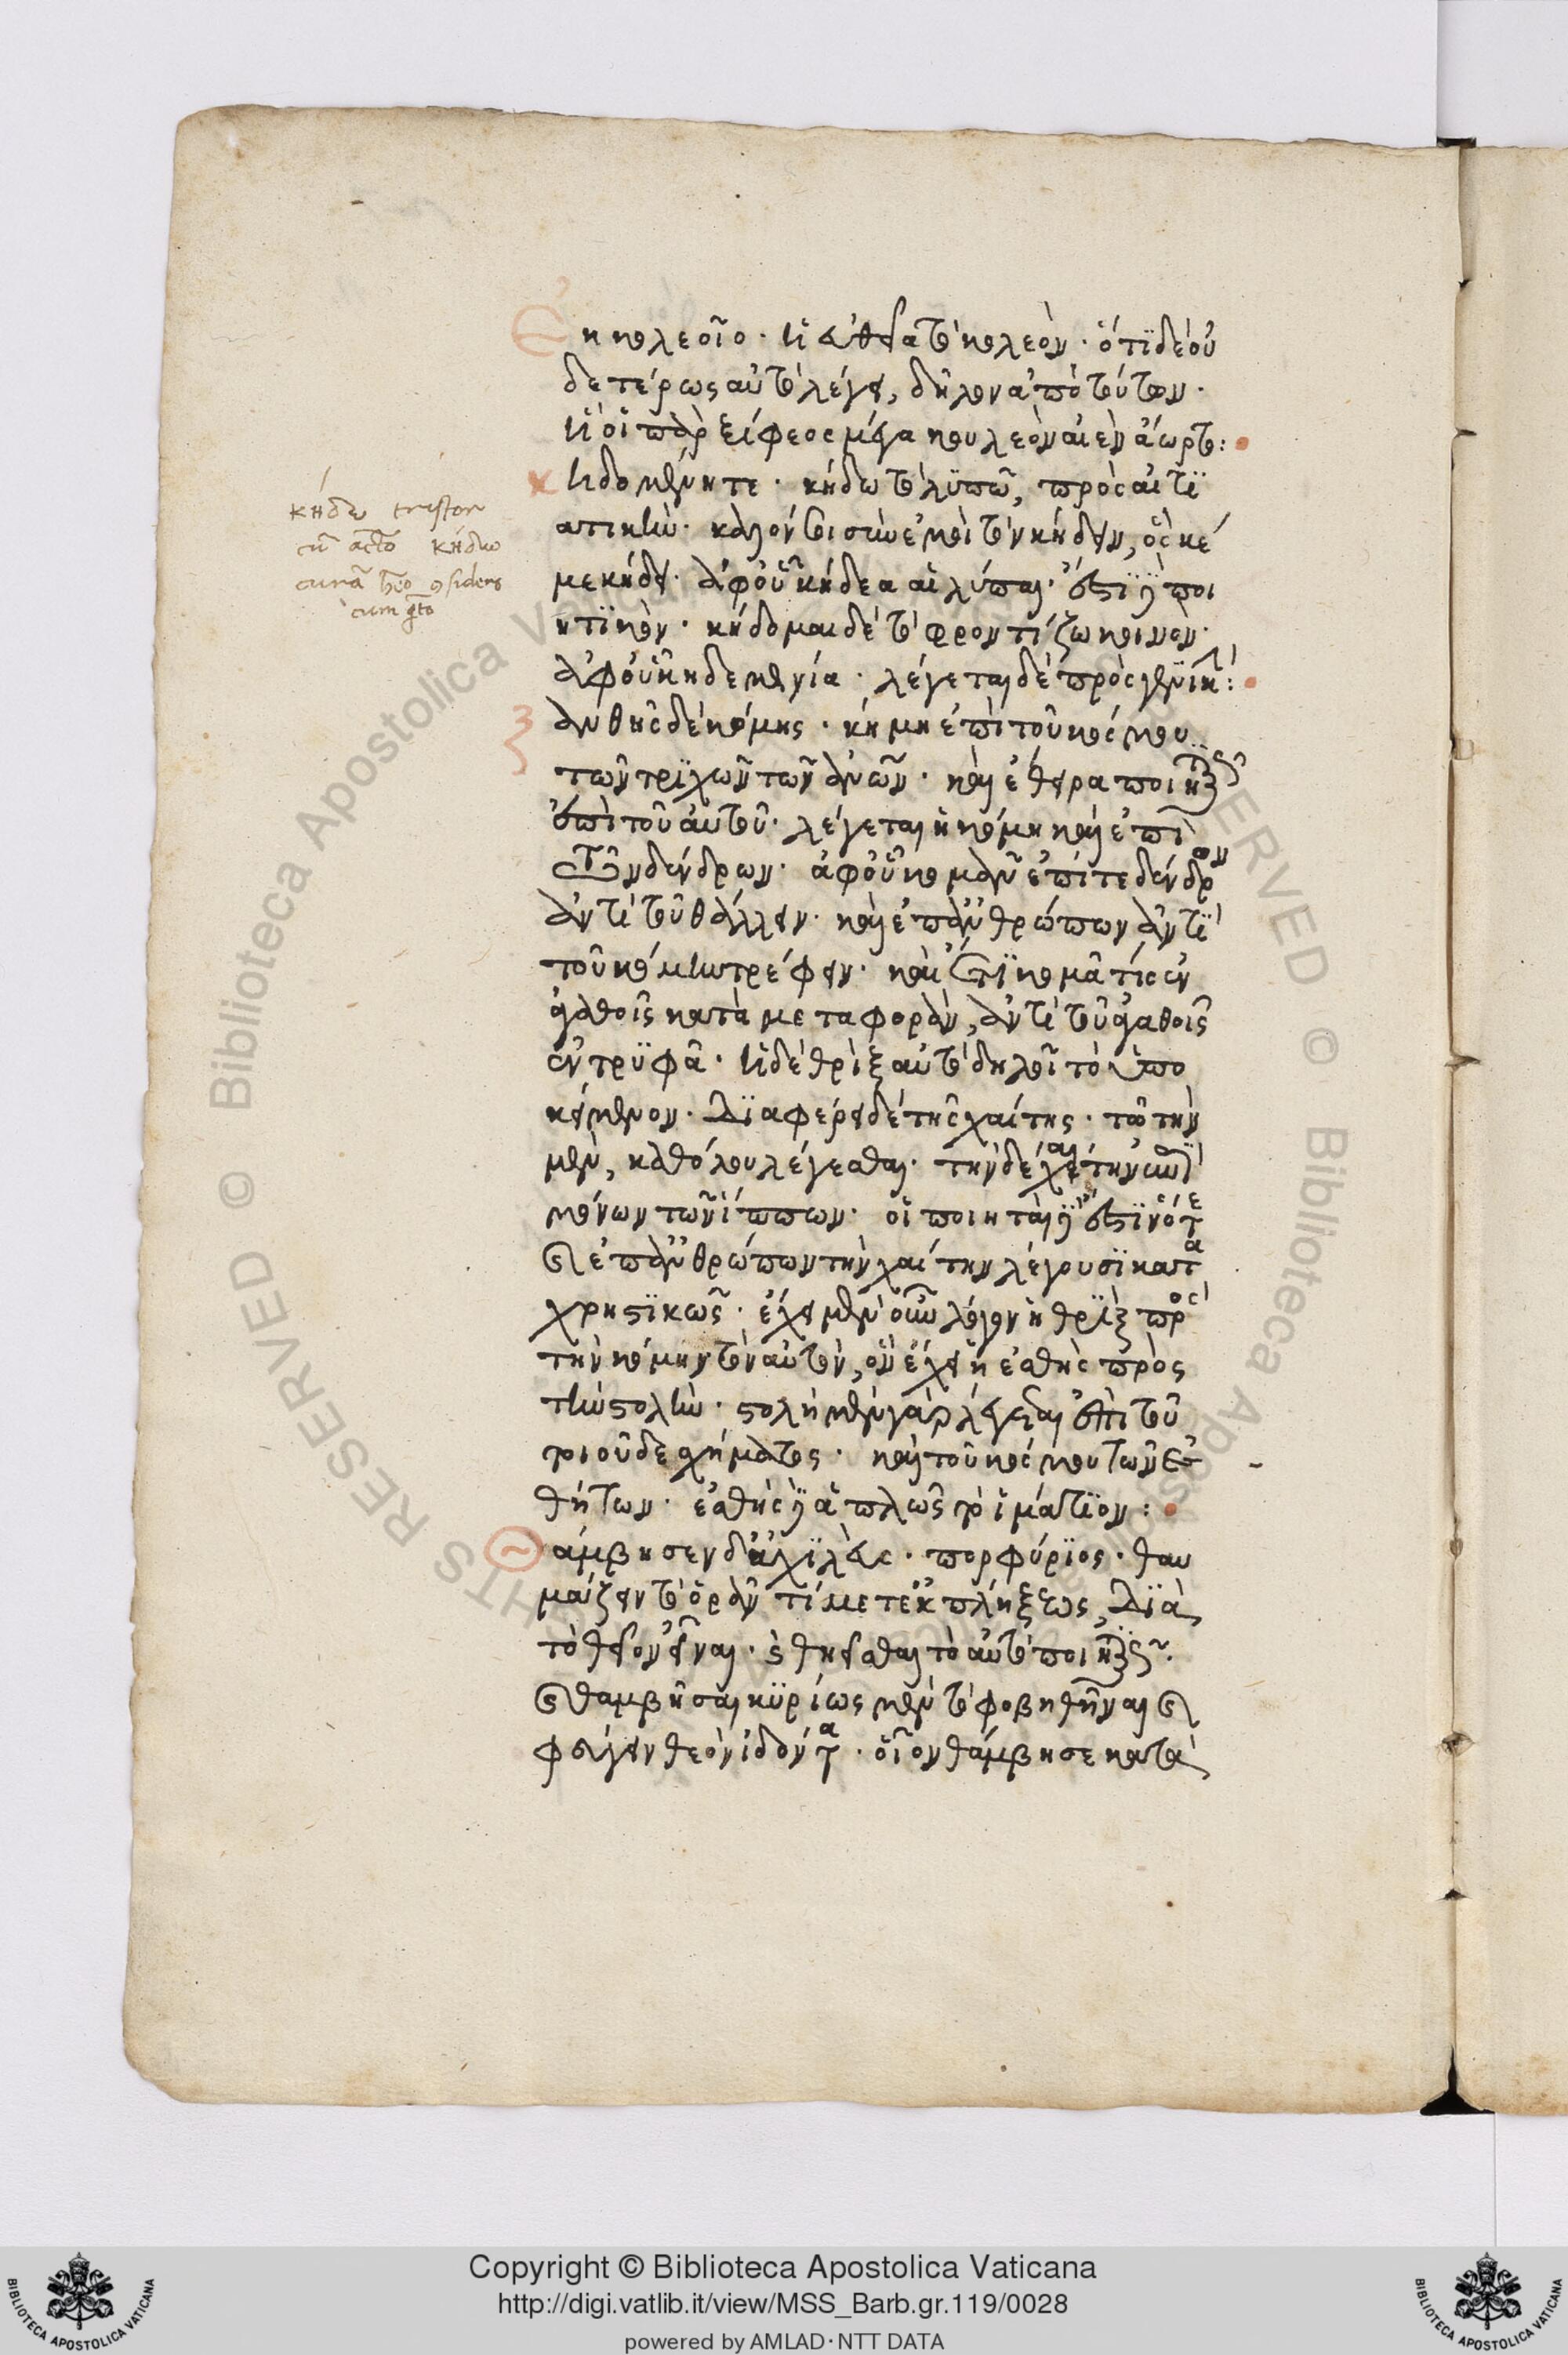 Ἐκ κολεοῖο · ἡ εὐθεῖα τὸ κολεόν · ὅτι δὲ οὐ
δετέρως αὐτὸ λέγει, δῆλον ἀπὸ τούτων ·
ἥ οἱ πὰρ ξίφεος μέγα κουλεὸν αἰὲν ἄωρτο :
κηδομένη τε · κήδω τὸ λυπῶ, πρὸς αἰτι
ατικήν · καλόν τοι σὺν ἐμοὶ τὸν κήδειν, ὅς κέ
με κήδει · ἀφ' οὗ κήδεα αἱ λύπαι · ἔστι δὲ ποι
ητικόν · κήδομαι δὲ τὸ φροντίζω κοινόν ·
ἀφ' οὗ κηδεμονία · λέγεται δὲ πρὸς γενικήν :
ξανθῆς δὲ κόμης · κόμη ἐπὶ τοῦ κόσμου
τῶν τριχῶν τῶν ἀνων · καὶ ἔθειρα ποιητικῶς
ἐπὶ τοῦ αὐτοῦ · λέγεται ἡ κόμη καὶ ἐπὶ
τῶν δένδρων · ἀφ' οὗ κομᾶν ἐπί τε δένδρων
ἀντὶ τοῦ θάλλειν · καὶ ἐπ' ἀνθρώπων ἀντὶ
τοῦ κόμην τρέφειν · καὶ ἔτι κομᾶ τίς ἐν
ἀγαθοῖς κατὰ μεταφοράν, ἀντὶ τοῦ ἀγαθοῖς
ἐντρυφᾶ · ἡ δὲ θρὶξ αὐτὸ δηλοῖ τὸ ὑπο
κείμενον · διαφέρει δὲ τῆς χαίτης · τῷ τὴν
μὲν, καθόλου λέγεσθαι · τὴν δὲ χαίτην ἐπὶ
μόνων τῶν ἵππων · οἱ ποιηταὶ δὲ ἔστιν ὅτε
καὶ ἐπ' ἀνθρώπων τὴν χαίτην λέγουσι κατα
χρηστικῶς · ἔχει μὲν οὖν λόγον ἡ θρὶξ πρὸς
τὴν κόμην τὸν αὐτὸν, ὃν ἔχει ἡ ἐσθὴς πρὸς
τὴν στολήν · στολὴ μὲν γὰρ λέγεται ἐπὶ τοῦ
τοιοῦδε σχήματος · καὶ τοῦ κόσμου τῶν ἐσ
θήτων · ἐσθὴς δὲ ἁπλῶς τὸ ἱμάτιον :
Θάμβησεν δ' ἀχιλεύς · πορφύριος · θαυ
μάζειν τὸ ὁρᾶν τί μετ' ἐκπλήξεως, διὰ
τὸ θεῖον εἶναι · καὶ θηεῖσθαι τὸ αὐτὸ ποιητικῶς ·
καὶ θαμβῆσαι κυρίως μὲν τὸ φοβηθῆναι καὶ
φεύγειν θεὸν ἰδόντα · οἷον θάμβησε κατὰ
κήδω tristor
cū actō κήδω
curā
cum gtō
Copyright © Biblioteca Apostolica Vaticana
http://digi.vatlib.it/view/MSS_Barb.gr.119/0028
powered by AMLAD·NTT DATA
BIBLIOTECA APOSTOLICA VATICANA
BIBLIOTECA APOSTOLICA VATICANA